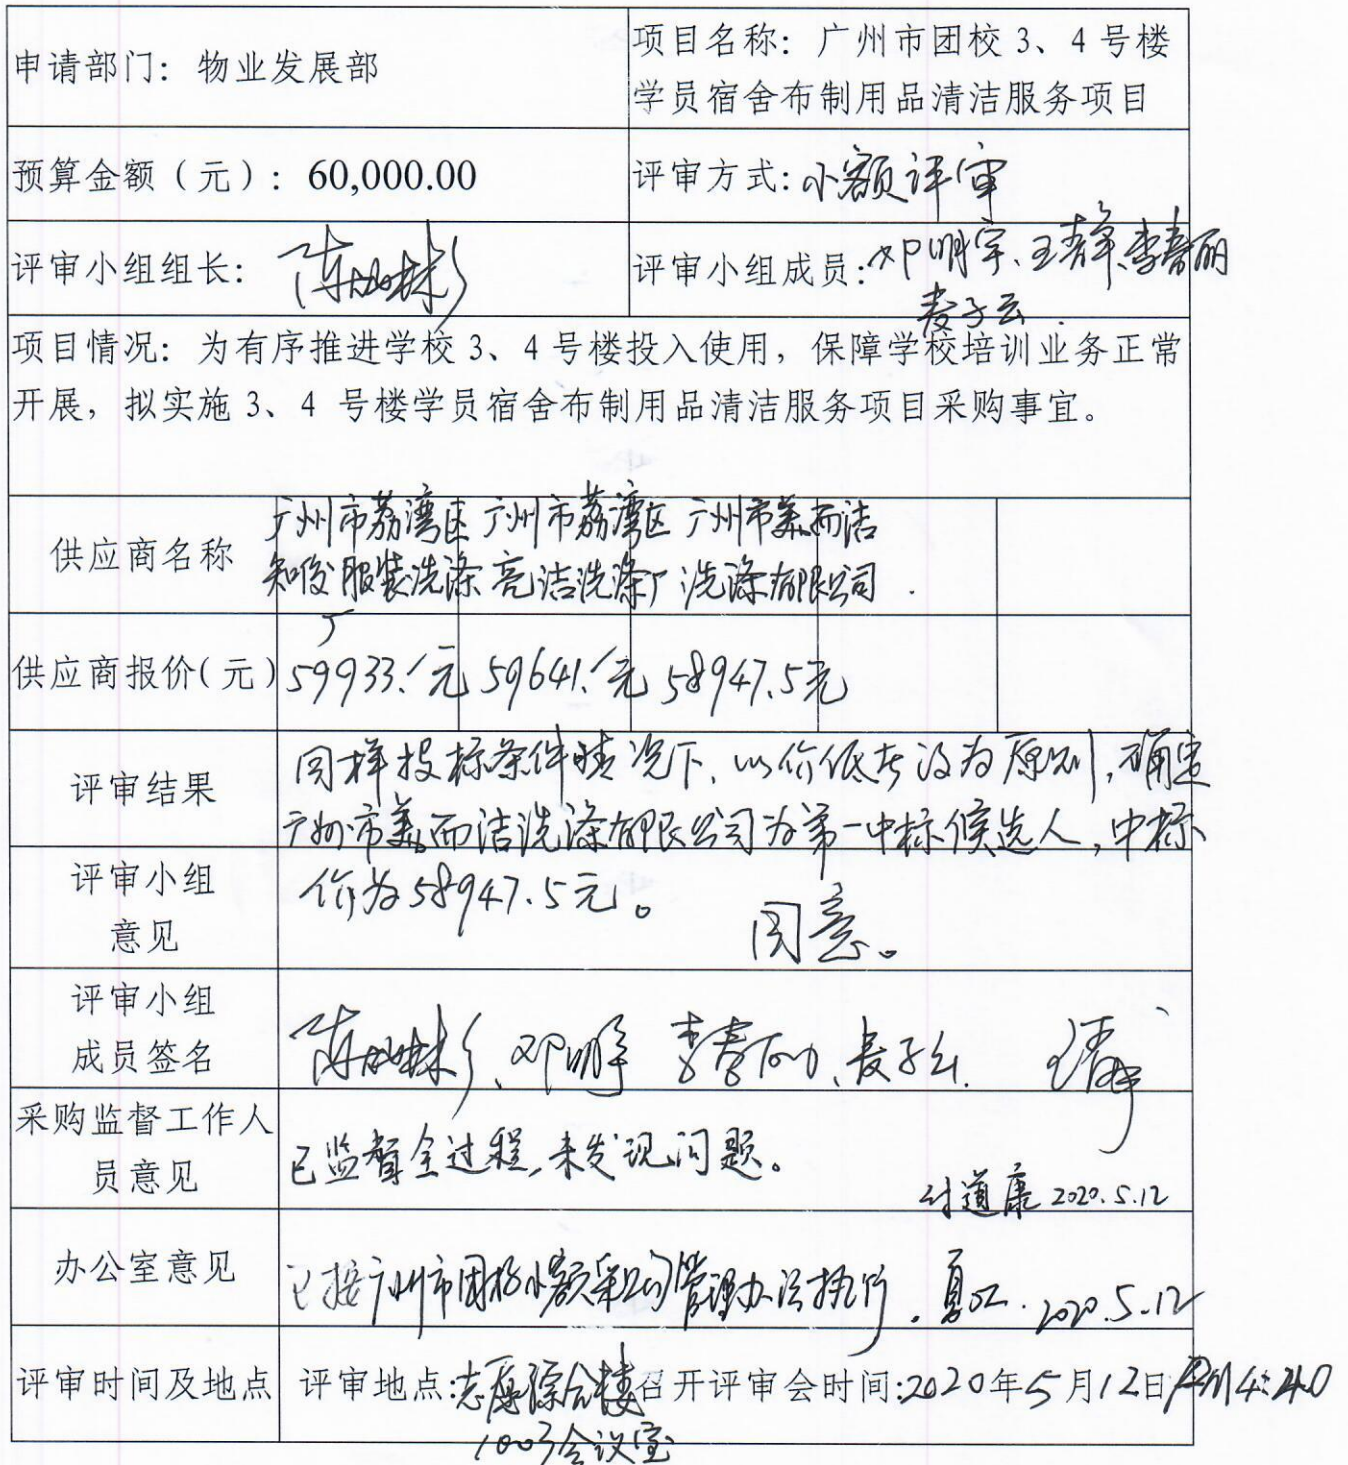 申请部门：物业发展部
项目名称：广州市团校 3、4 号楼
学员宿舍布制用品清洁服务项目
预算金额（元）：60,000.00
评审方式：小额评审
评审小组组长：
评审小组成员：邓明宇、王春苹、李春丽
麦子云
项目情况：为有序推进学校 3、4 号楼投入使用，保障学校培训业务正常
开展，拟实施 3、4 号楼学员宿舍布制用品清洁服务项目采购事宜。
供应商名称
广州市荔湾区
知俊服装洗涤
厂
广州市荔湾区
亮洁洗涤厂
广州市美而洁
洗涤有限公司
供应商报价（元）
59933.1元
59641.1元
58947.5元
评审结果
同样投标条件情况下，以价低者设为原则，确定
广州市美而洁洗涤有限公司为第一中标候选人，中标
价为58947.5元。
评审小组
意见
同意。
评审小组
成员签名
邓明宇
李春丽、麦子云
采购监督工作人
员意见
已监督全过程，未发现问题。
道康 2020.5.12
办公室意见
已按广州市团校小额采购管理办法执行。
2020.5.12
评审时间及地点
评审地点：志厚综合楼
1003会议室
召开评审会时间：2020年5月12日 4:40